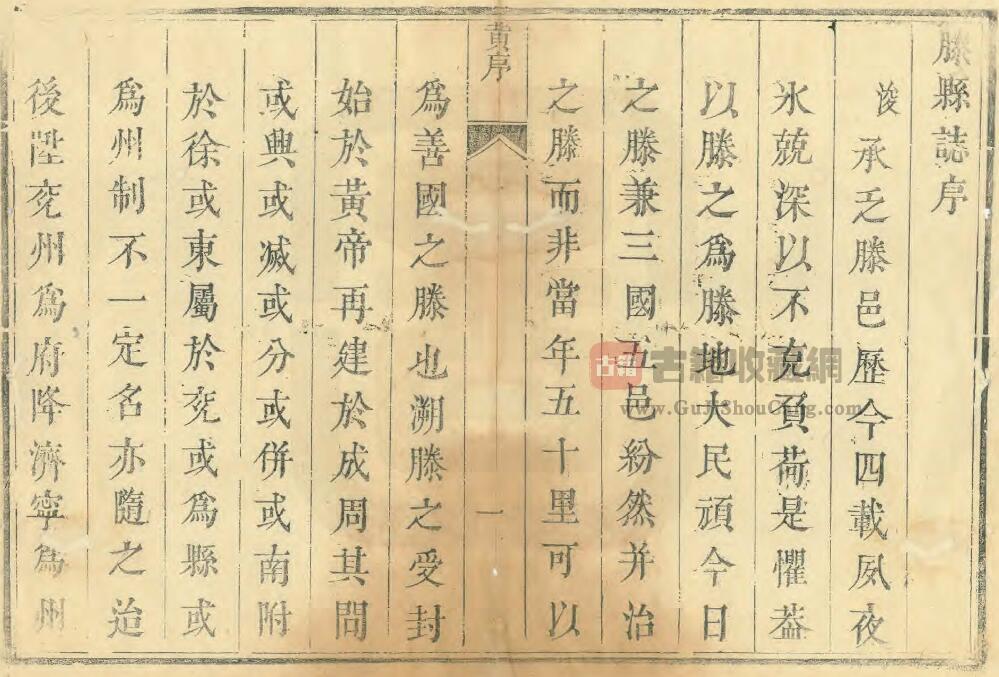 滕縣誌序
浚承乏滕邑歷今四載夙夜
氷兢深以不克負荷是懼葢
以滕之爲滕地大民頑今日
之滕兼三國五邑紛然并治
之滕而非當年五十里可以
黄序
一
爲善國之滕也溯滕之受封
始於黃帝再建於成周其問
或興或滅或分或併或南附
於徐或東屬於兖或爲縣或
爲州制不一定名亦隨之迨
後陞兖州爲府降濟寧爲州
古籍
古籍收藏網
www.GuJiShouCang.com